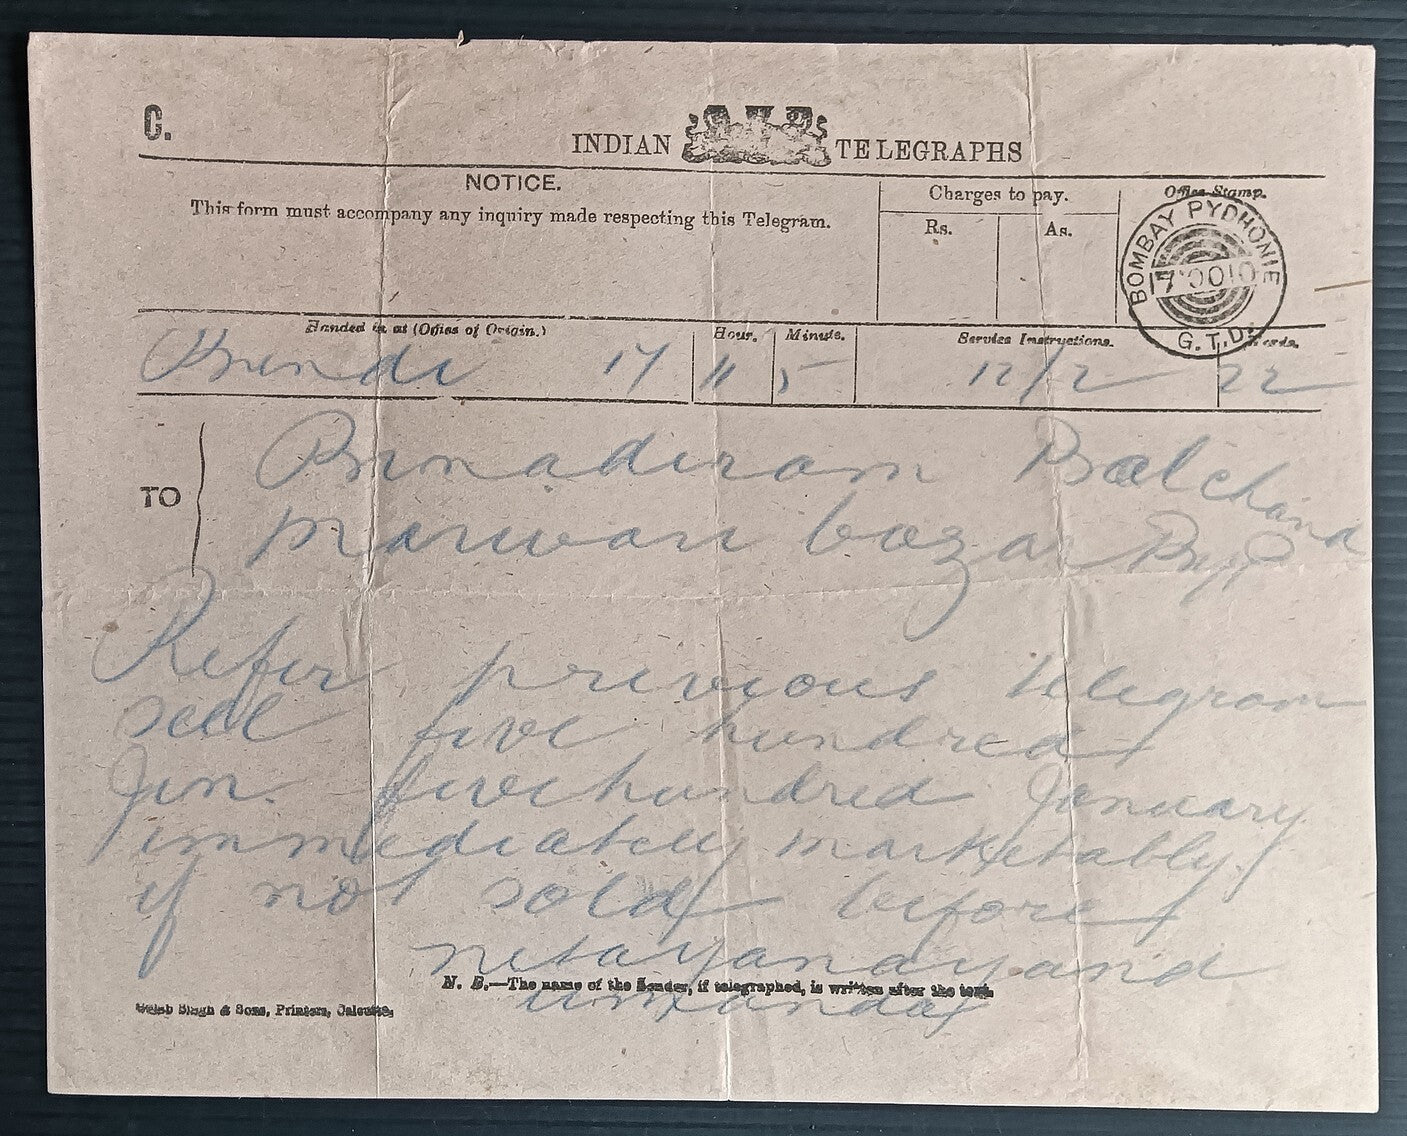 C.
INDIAN TELEGRAPHS
NOTICE.
This form must accompany any inquiry made respecting this Telegram.
Charges to pay.
Rs. As.
Office Stamp.
BOMBAY PYDHONIE
17 OC 10
G.T.D.
Handed in at (Office of Origin.) Hour. Minute. Service Instructions. Words.
17 11 5 12/2 22
TO
Balchand
Marwari bazar
Refer previous telegram
sell five hundred
Jin. five hundred January
immediately marketably
if not sold before
N. B.—The name of the Sender, if telegraphed, is written after the text.
& Sons, Printers, Calcutta.